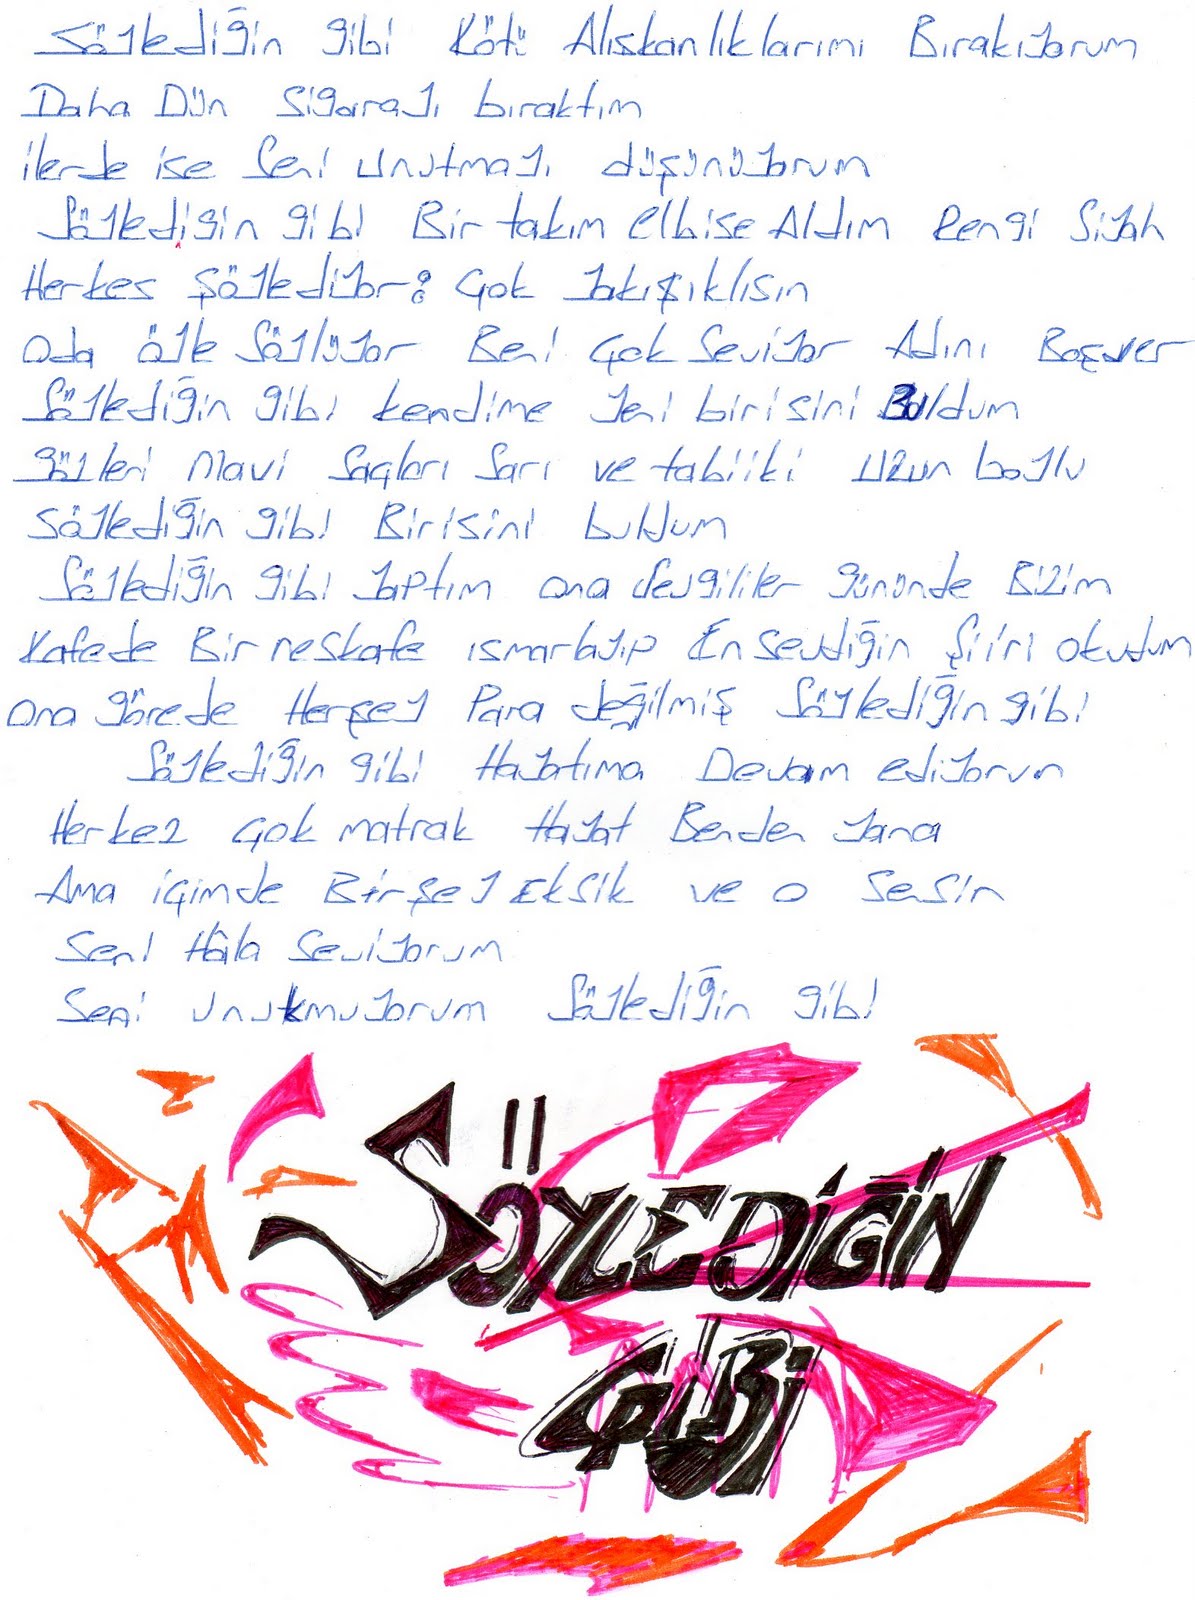 Söylediğin gibi Kötü Alıskanlıklarımı Bırakıyorum
Daha Dün sigarayı bıraktım
ilerde ise Seni unutmayı düşünüyorum
Söyledigin gibi Bir takım elbise Aldım Rengi Siyah
Herkes şöylediyor: Çok Yakışıklısın
Oda öyle Söylüyor Beni Çok Seviyor Adını Boşver
Söylediğin gibi kendime Yeni birisini Buldum
gözleri Mavi Saçları Sarı ve tabiiki uzun boylu
Söylediğin gibi Birisini buldum
Söylediğin gibi Yaptım ona Sevgililer Gününde Bizim
Kafede Bir neskafe ısmarlayıp En sevdiğin Şiiri okudum
ona görede Herşey Para değilmiş Söylediğin gibi
Söylediğin gibi Hayatıma Devam ediyorum
Herkez Çok matrak Hayat Benden Yana
Ama içimde Birşey Eksik ve o Sensin
Seni Hâla Seviyorum
Seni unutmuyorum Söylediğin gibi
SÖYLEDİĞİN
GİBİ